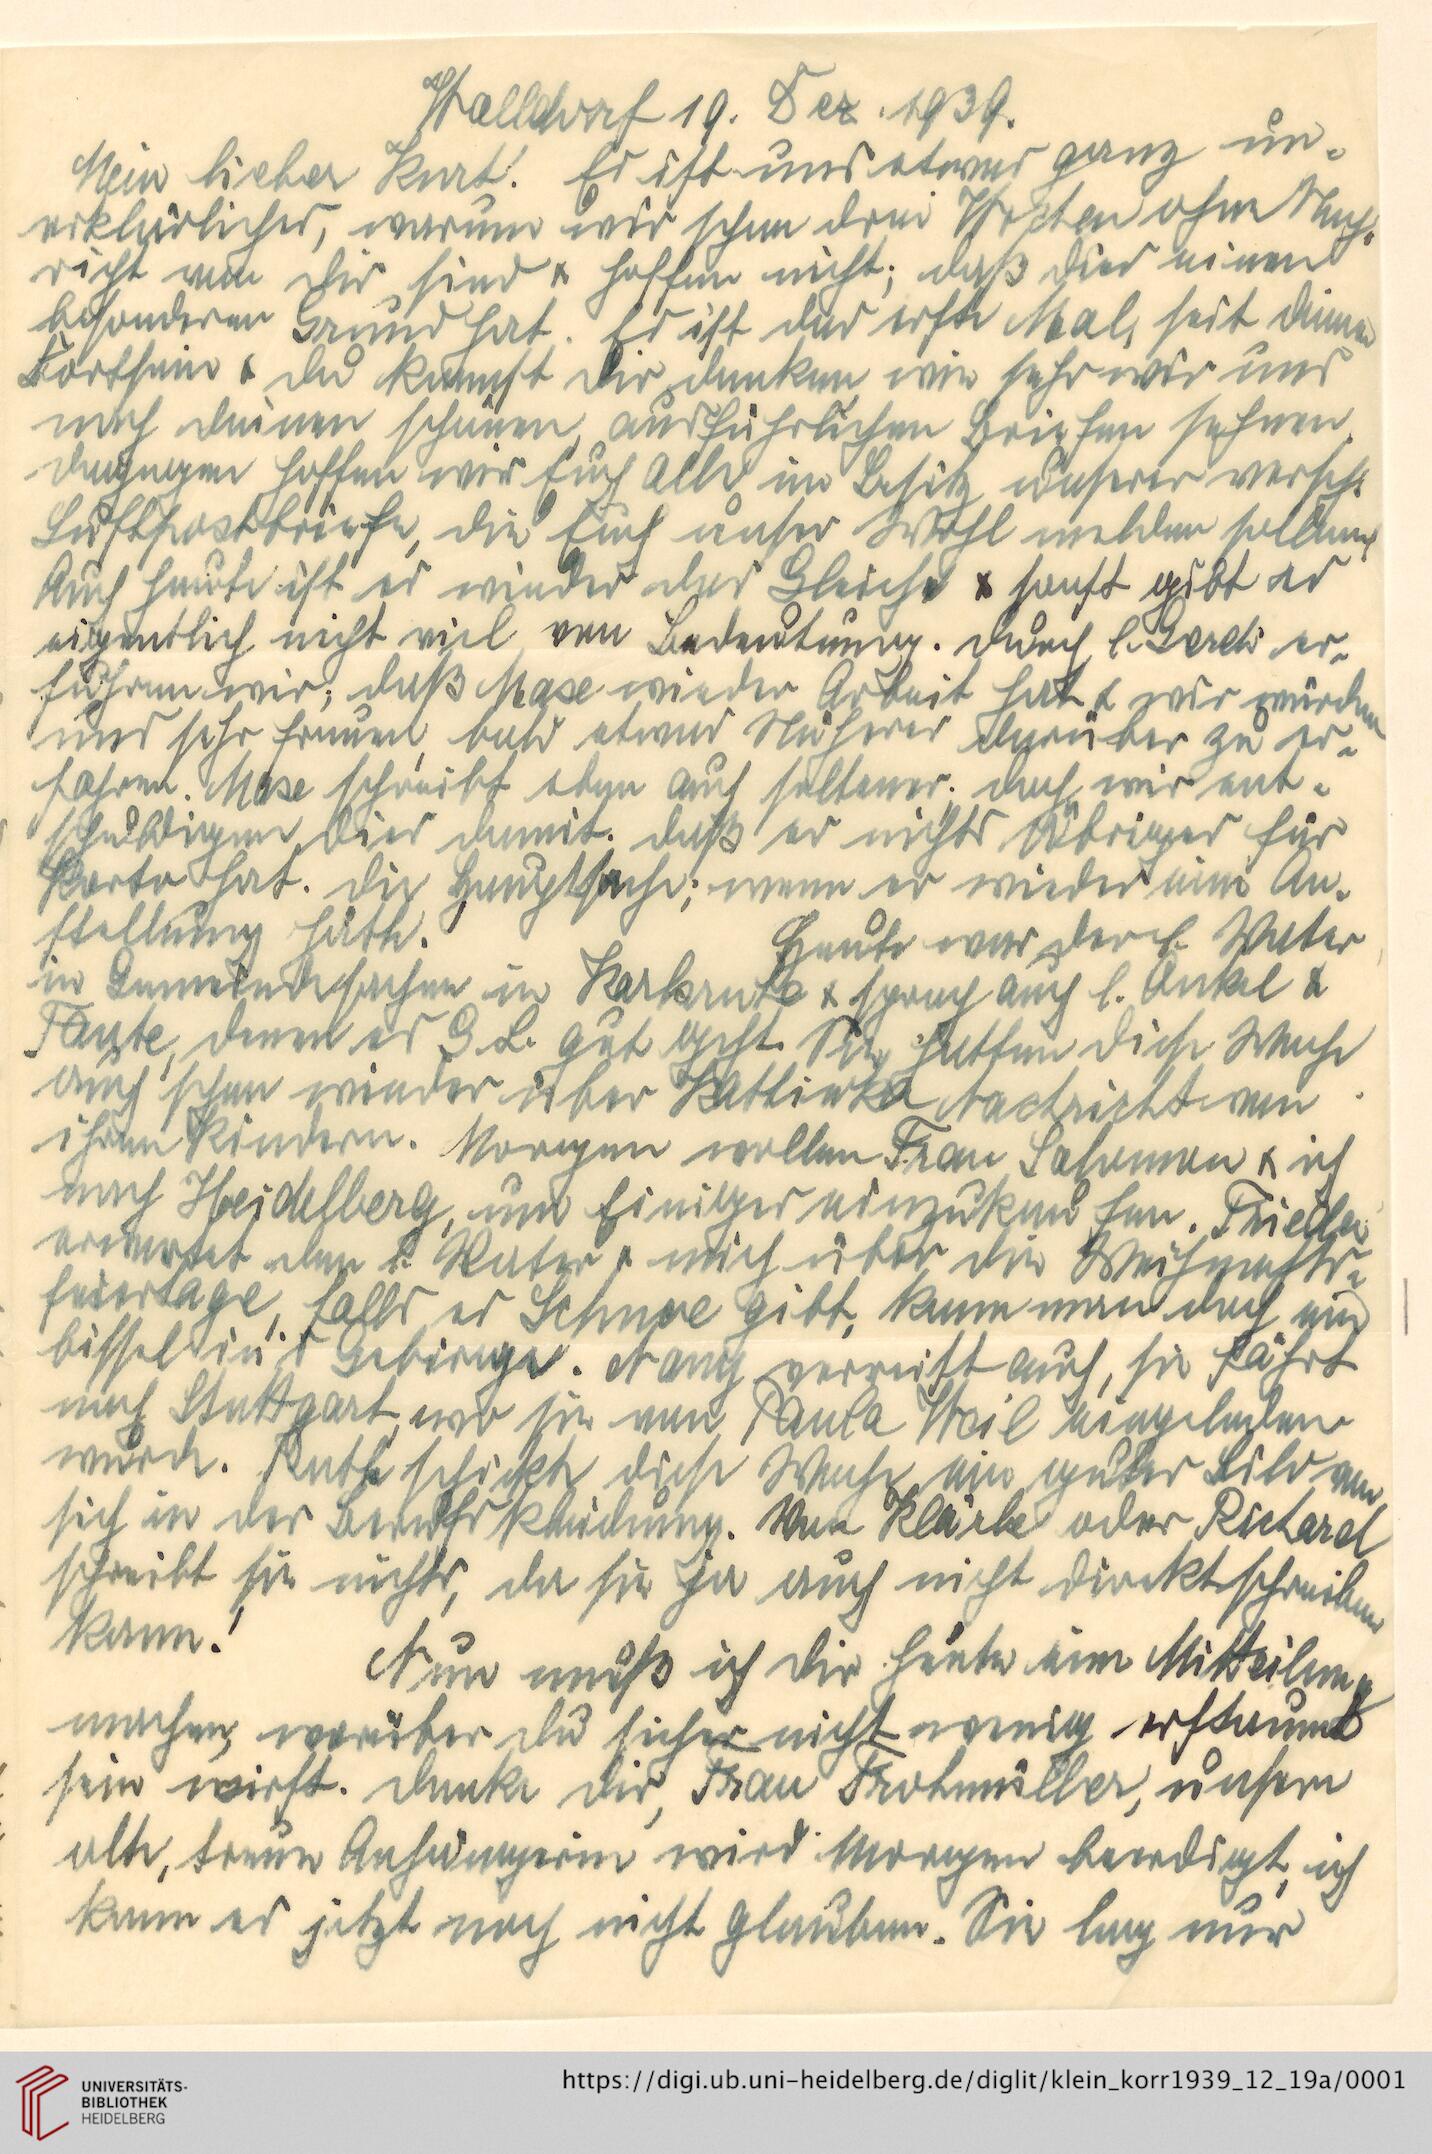 Walldorf 19. Dez. 1939.
Mein lieber Kurt! Es ist uns etwas ganz un-
erklärliches, warum wir schon drei Wochen ohne Nach-
richt von dir sind & hoffen nicht, daß dies einen
besonderen Grund hat. Es ist das erste Mal, seit deinem
Fortsein & du kannst dir denken, wie sehr wir uns
nach deinen schönen, ausführlichen Briefen sehnen.
dagegen hoffen wir Euch alle im Besitz unserer versch.
Luftpostbriefe, die Euch unser Wohl melden sollen.
Auch heute ist es wieder das Gleiche & sonst gibt es
eigentlich nicht viel von Bedeutung. durch l. Gerdi er-
fuhren wir, daß Maxe wieder Arbeit hat & wir würden
uns sehr freuen, bald etwas Näheres darüber zu er-
fahren. Maxe schreibt eben auch seltener. doch wir ent-
schuldigen dies damit, daß er nichts Übriges für
Porto hat. die Hauptsache, wenn er wieder eine An-
stellung hätte. Heute war der l. Vater
in Gemeindesachen in Karlsruhe & sprach auch l. Onkel &
Tante, denen es G. L. gut geht. Sie hatten diese Woche
auch schon wieder über Nachricht von
ihren Kindern. Morgen wollen Frau Salomon & ich
nach Heidelberg, um Einiges einzukaufen. Frieda
erwartet den l. Vater & mich über die Weihnachts-
feiertage, falls es Schnee gibt, kann man doch ein
bissel in's Gebirge. Nany verreist auch, sie fährt
nach Stuttgart, wo sie von Paula Weil eingeladen
wurde. Ruth schickte diese Woche ein gutes Bild von
sich in der Berufskleidung. Von Klärle oder Richard
schreibt sie nichts, da sie ja auch nicht direkt schreiben
kann!
Nun muß ich dir heute eine Mitteilung
machen, worüber du sicher nicht wenig erstaunt
sein wirst. denke dir, Frau Frohmüller, unsere
alte, treue Anhängerin wird morgen beerdigt, ich
kann es jetzt noch nicht glauben. Sie lag nur
UNIVERSITÄTS-
BIBLIOTHEK
HEIDELBERG
https://digi.ub.uni-heidelberg.de/diglit/klein_korr1939_12_19a/0001